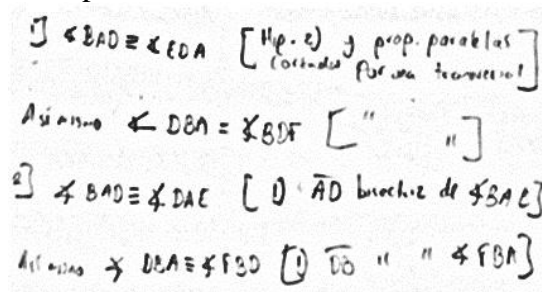 1] ∢BAD ≡ ∢EDA [Hip. 2) y prop. paralelas
cortadas por una transversal]
Asimismo ∢ DBA = ∢BDF [ " " ]
2] ∢ BAD ≡ ∢ DAE [ 1) AD bisectriz de ∢BAE]
Asimismo ∢ DBA ≡ ∢FBD [1) DB " " ∢FBA]